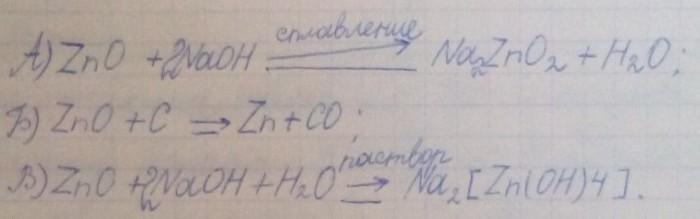 А) ZnO + 2NaOH сплавление ⇒ Na₂ZnO₂ + H₂O;
Б) ZnO + C ⇒ Zn + CO;
В) ZnO + 2NaOH + H₂O раствор ⇒ Na₂[Zn(OH)4].